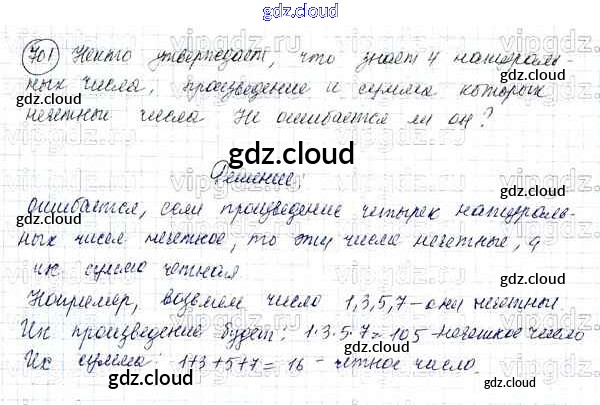 gdz.cloud
701 Некто утверждает, что знает 4 натураль-
ных числа, произведение и сумма которых
gdz.cloud gdz.cloud
нечетные числа Не ошибается ли он?
gdz.cloud
Решение:
ошибается, если произведение четырех натураль-
ных чисел нечетное, то эти числа нечетные, а
их сумма четная
gdz.cloud gdz.cloud
Например, возьмем числа 1,3,5,7 - они нечетные.
Их произведение будет: 1·3·5·7=105 - нечетное число
gdz.cloud
Их сумма: 1+3+5+7=16 - четное число.
gdz.cloud gdz.cloud